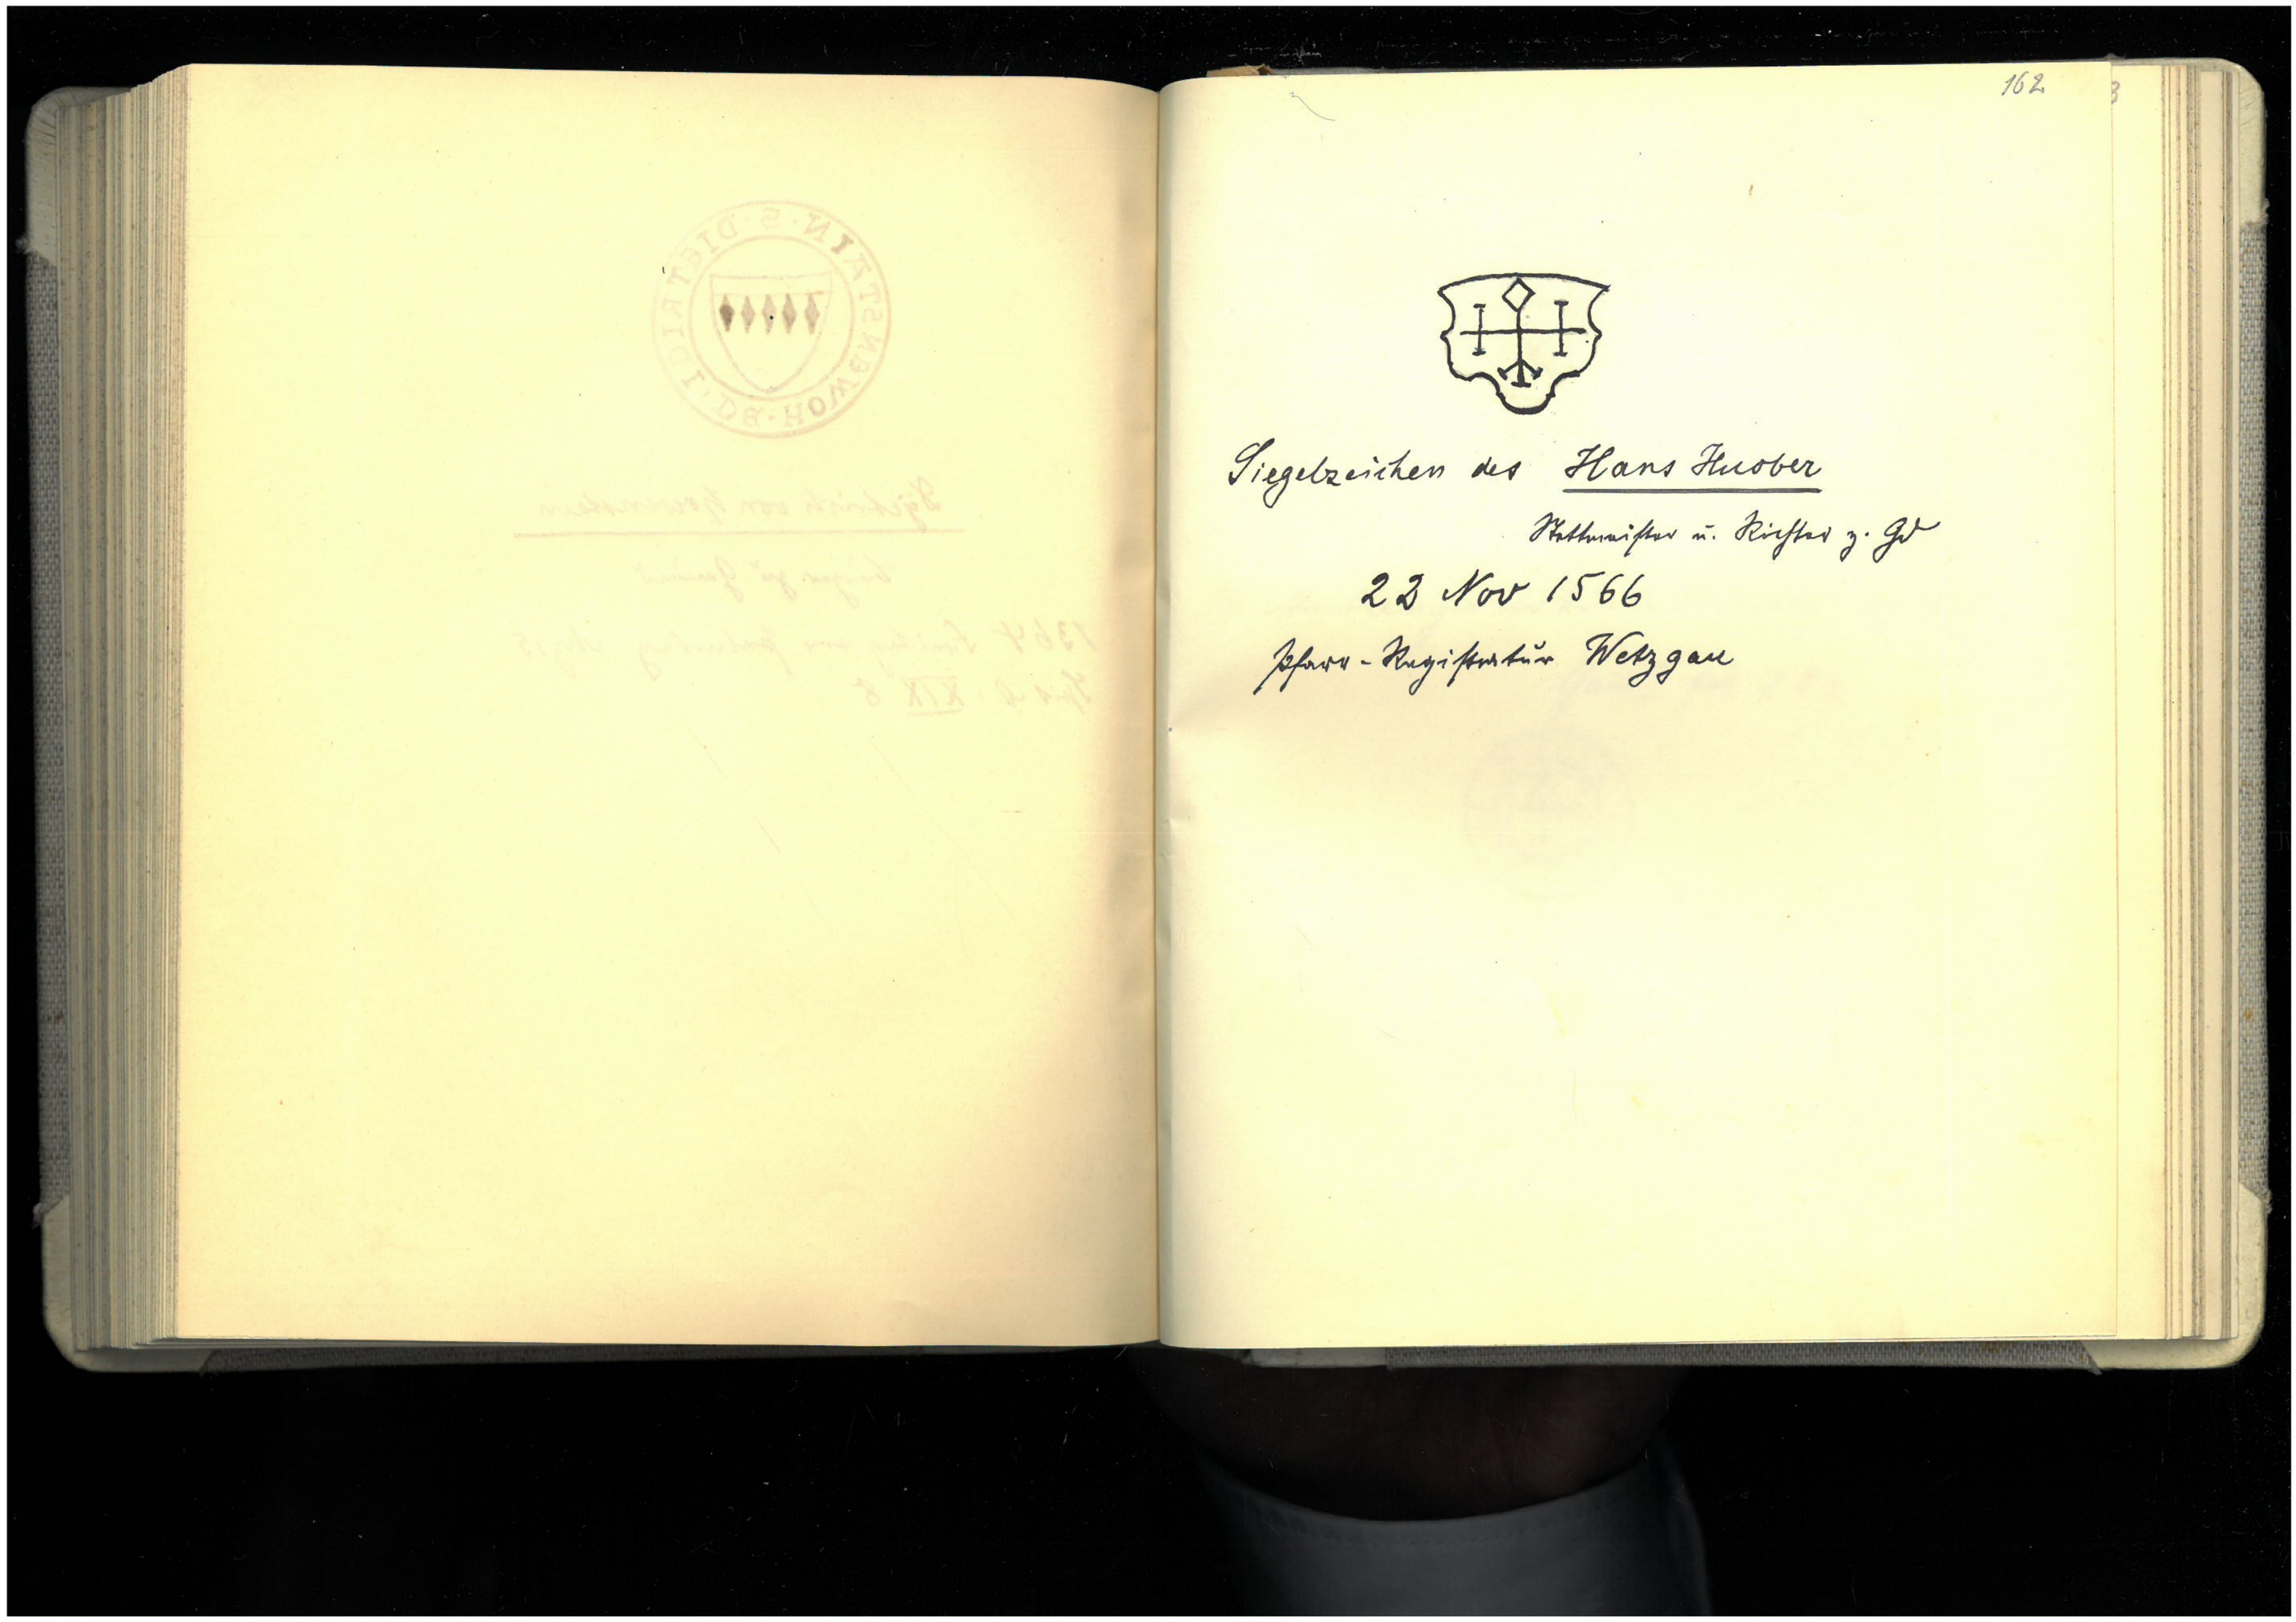 162
Siegelzeichen des Hans Huober
Stettmeister u. Richter z. Gd
22 Nov 1566
Pfarr-Registratur Wetzgau